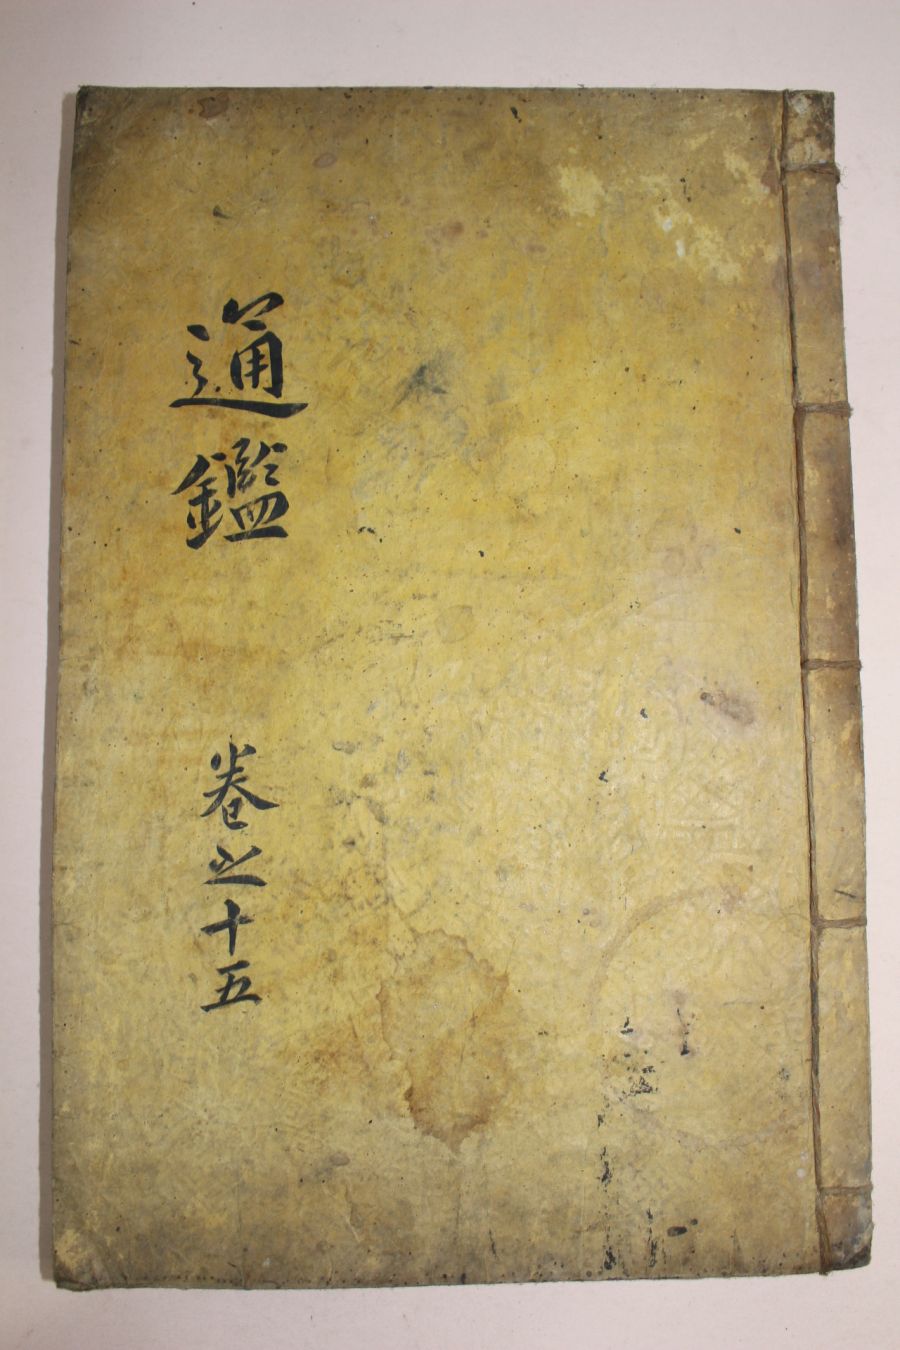 通鑑
卷之十五